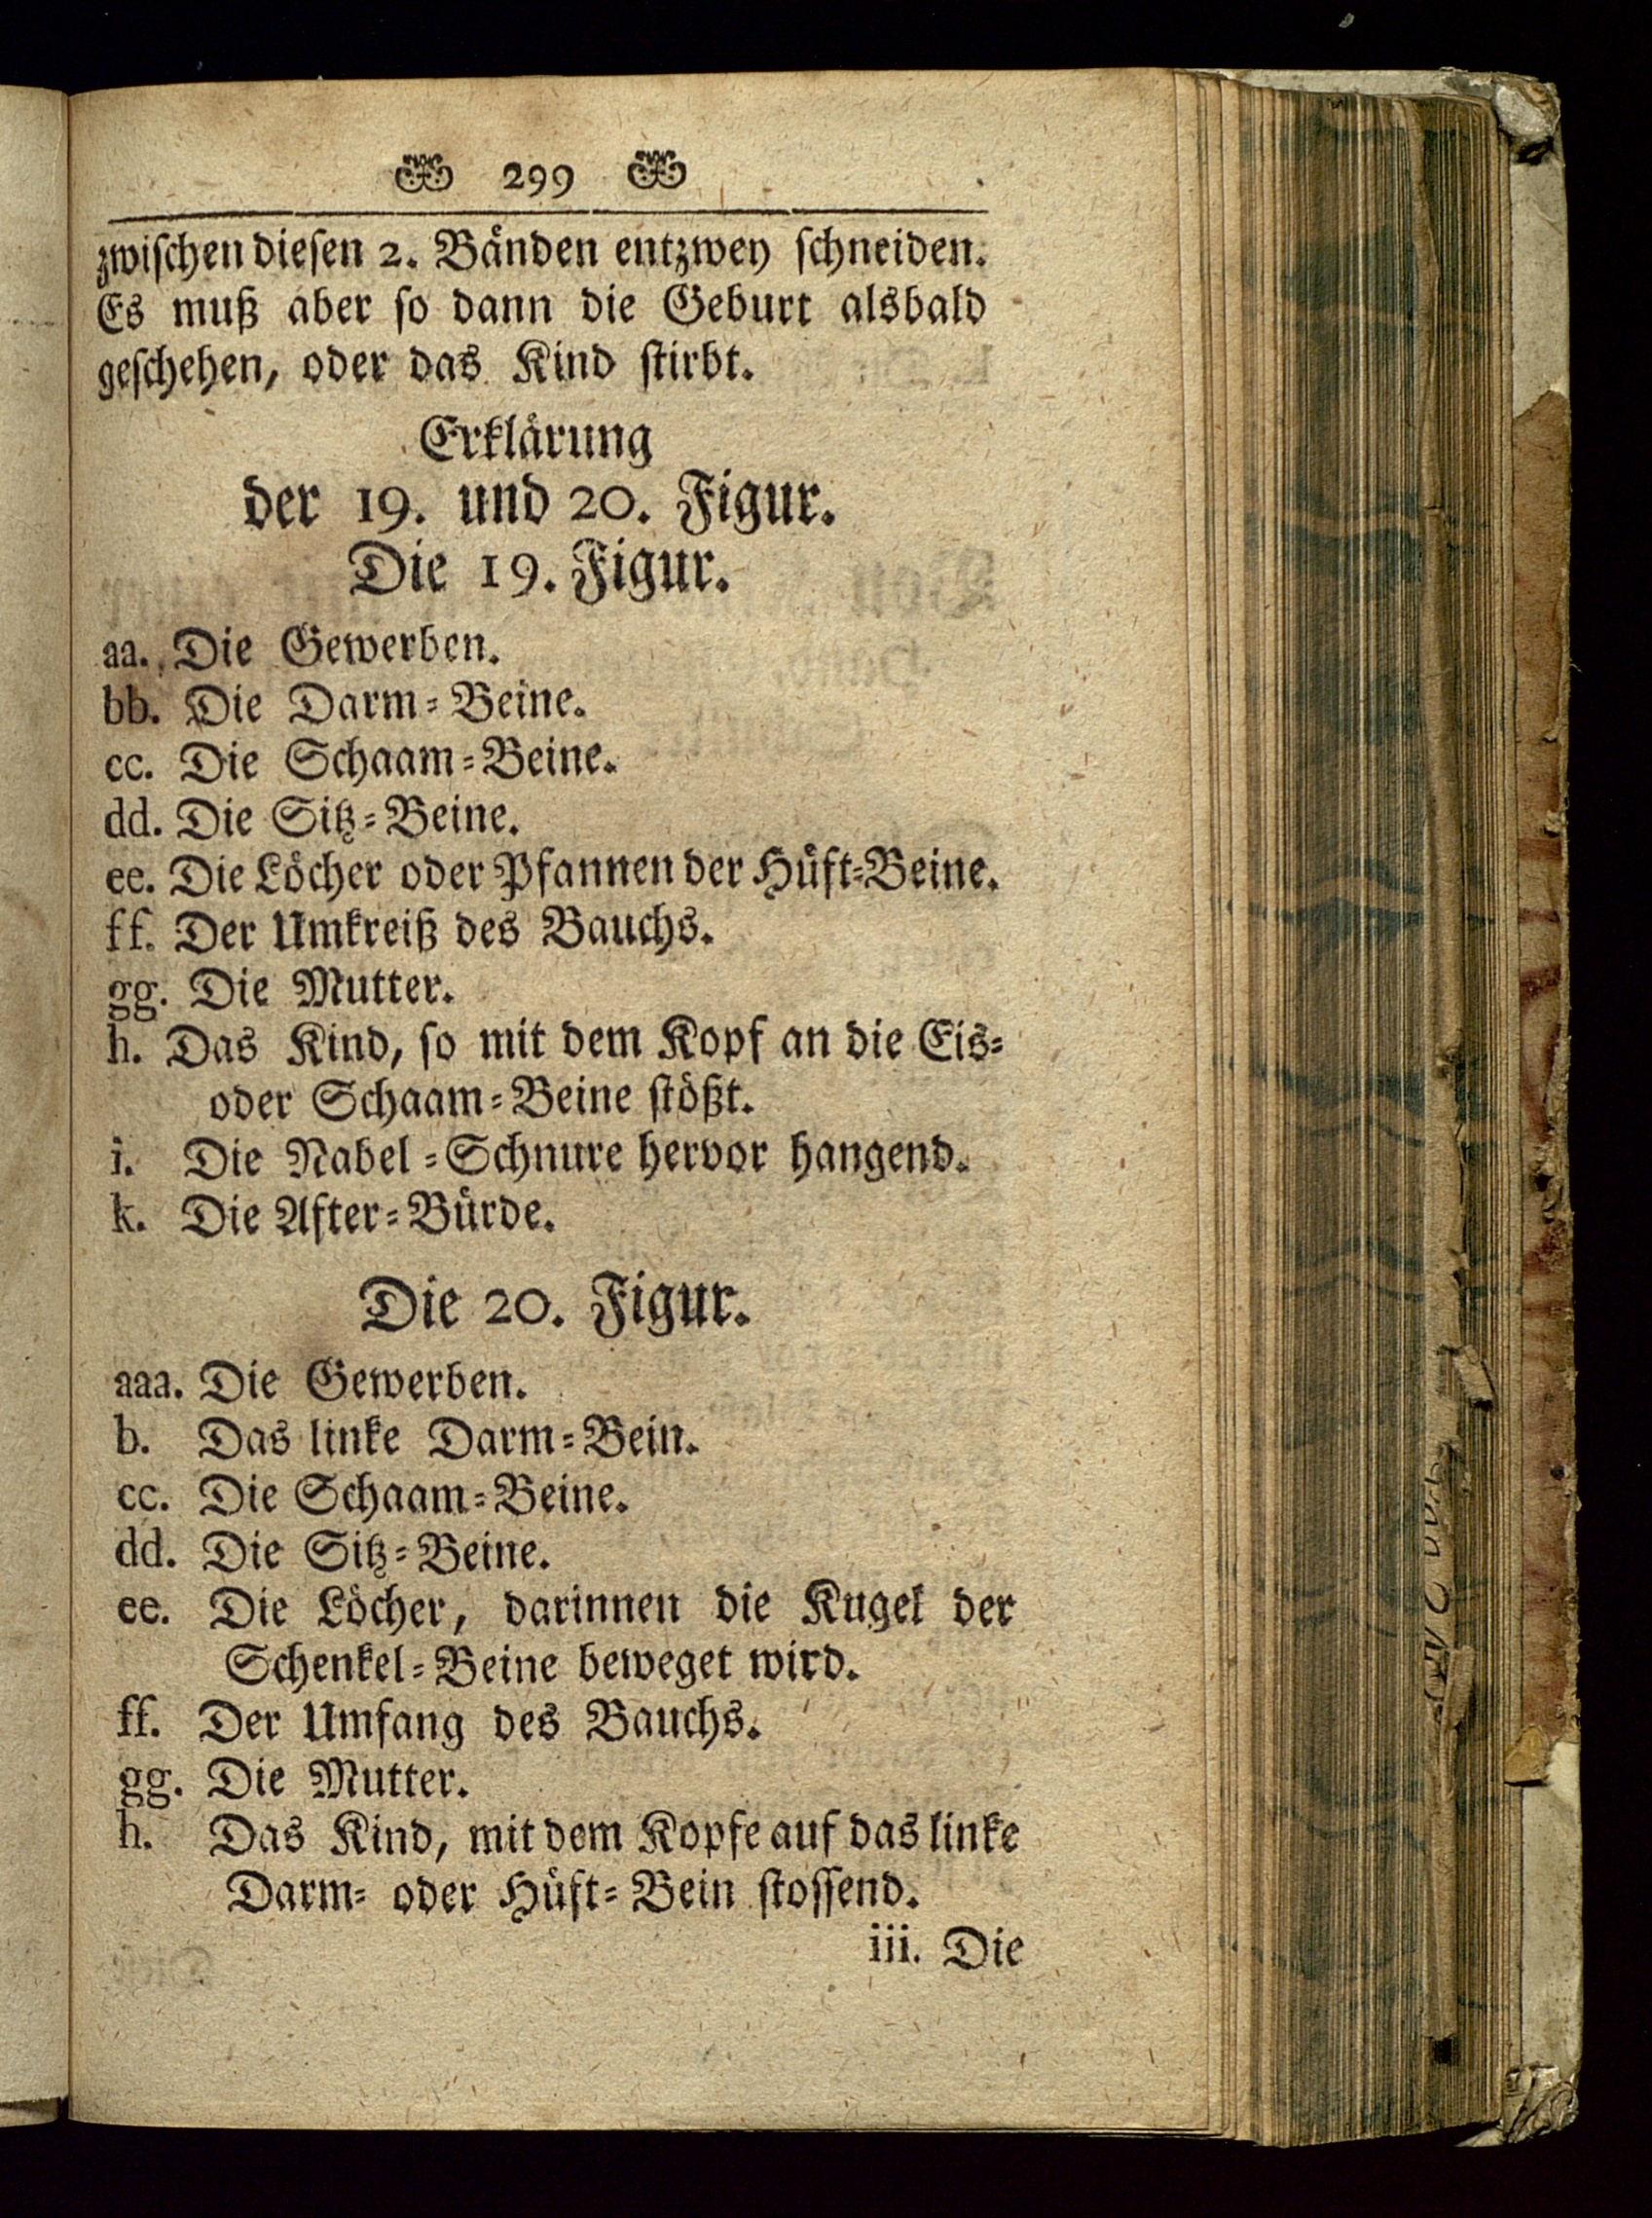 299
zwischen diesen 2. Bänden entzwey schneiden.
Es muß aber so dann die Geburt alsbald
geschehen, oder das Kind stirbt.
Erklärung
der 19. und 20. Figur.
Die 19. Figur.
aa. Die Gewerben.
bb. Die Darm-Beine.
cc. Die Schaam-Beine.
dd. Die Sitz-Beine.
ee. Die Löcher oder Pfannen der Hüft-Beine.
ff. Der Umkreiß des Bauchs.
gg. Die Mutter.
h. Das Kind, so mit dem Kopf an die Eis-
oder Schaam-Beine stößt.
i. Die Nabel-Schnure hervor hangend.
k. Die After-Bürde.
Die 20. Figur.
aaa. Die Gewerben.
b. Das linke Darm-Bein.
cc. Die Schaam-Beine.
dd. Die Sitz-Beine.
ee. Die Löcher, darinnen die Kugel der
Schenkel-Beine beweget wird.
ff. Der Umfang des Bauchs.
gg. Die Mutter.
h. Das Kind, mit dem Kopfe auf das linke
Darm- oder Hüft-Bein stossend.
iii. Die